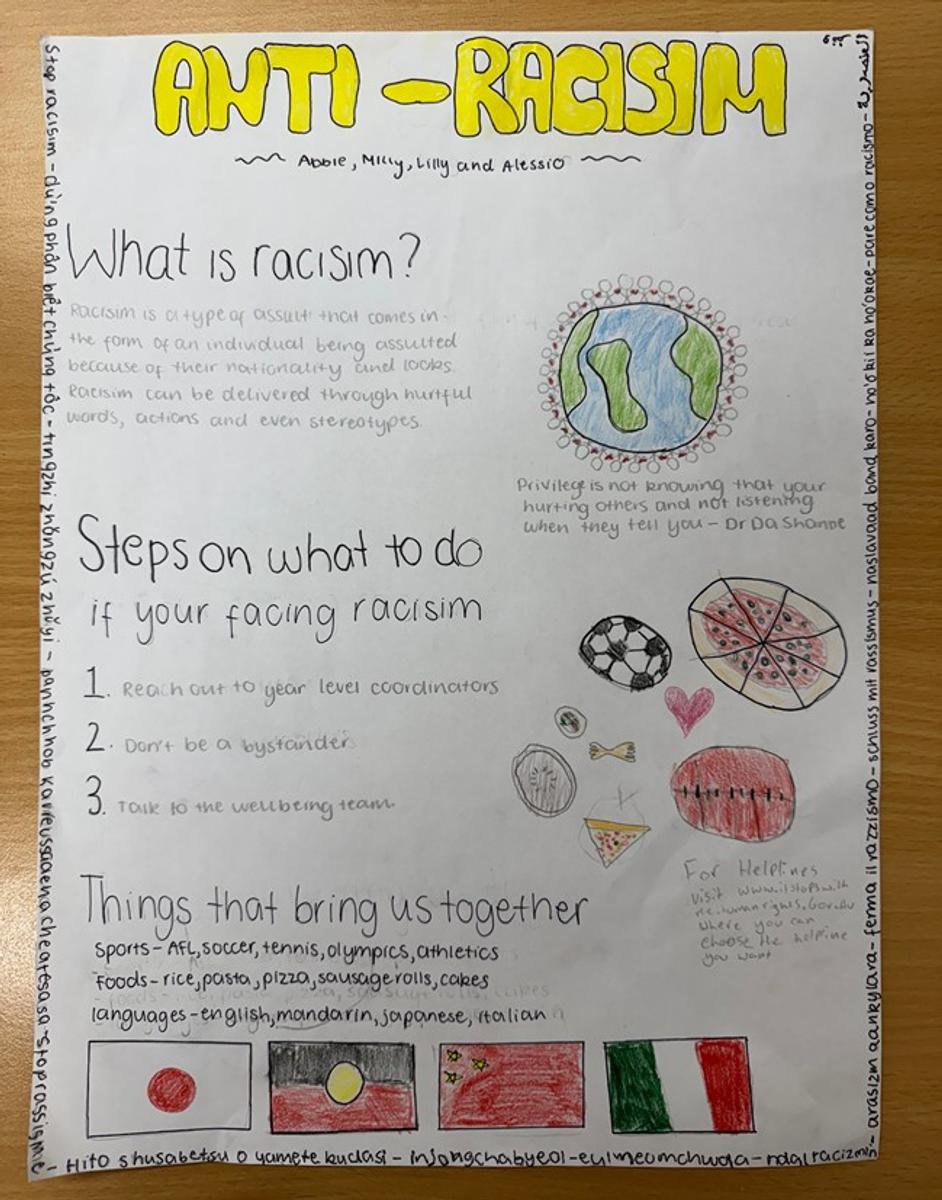 ANTI - RACISIM
Abbie, Milly, Lilly and Alessio
What is racisim?
Racisim is a type of assult that comes in
the form of an individual being assulted
because of their nationality and looks.
Racisim can be delivered through hurtful
words, actions and even stereotypes.
Privilege is not knowing that your
hurting others and not listening
when they tell you - Dr Da Shanne
Steps on what to do
if your facing racisim
1. Reach out to year level coordinators
2. Don't be a bystander
3. Talk to the wellbeing team.
For Helplines
visit www.itstopswith
me.humanrights.Gov.Au
where you can
choose the helpine
you want
Things that bring us together
sports - AFL, soccer, tennis, olympics, athletics
Foods - rice, pasta, pizza, sausage rolls, cakes
languages - english, mandarin, japanese, italian
Stop racisim - dừng phân biệt chủng tộc - tingzhi zhǒngzú zhǔyì - panhchhob karreussaaena cheatesasa - stop rassisme -
Hito shusabetsu o yamete kudasi - injongchabyeol-eul meomchwoda - ndal racizmin -
arasizm aankylara - ferma il razzismo - schluss mit rassismus - naslavaad band karo - ho'okii ka ho'okae - pare como racismo -